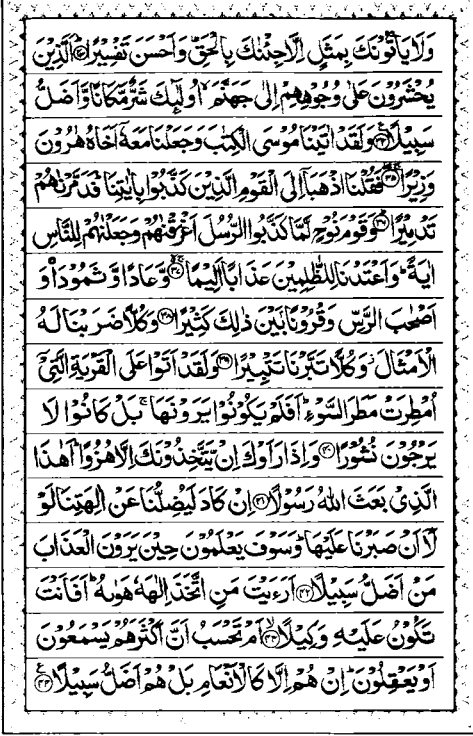 وَلَا يَاْتُوْنَكَ بِمَثَلٍ اِلَّا جِئْنٰكَ بِالْحَقِّ وَاَحْسَنَ تَفْسِيْرًا ﴿٣٣﴾ اَلَّذِيْنَ
يُحْشَرُوْنَ عَلٰى وُجُوْهِهِمْ اِلٰى جَهَنَّمَ ۙ اُولٰٓئِكَ شَرٌّ مَّكَانًا وَّاَضَلُّ
سَبِيْلًا ﴿٣٤﴾ وَلَقَدْ اٰتَيْنَا مُوْسَى الْكِتٰبَ وَجَعَلْنَا مَعَهٗٓ اَخَاهُ هٰرُوْنَ
وَزِيْرًا ﴿٣٥﴾ فَقُلْنَا اذْهَبَآ اِلَى الْقَوْمِ الَّذِيْنَ كَذَّبُوْا بِاٰيٰتِنَا ۗ فَدَمَّرْنٰهُمْ
تَدْمِيْرًا ﴿٣٦﴾ وَقَوْمَ نُوْحٍ لَّمَّا كَذَّبُوا الرُّسُلَ اَغْرَقْنٰهُمْ وَجَعَلْنٰهُمْ لِلنَّاسِ
اٰيَةً ۗ وَاَعْتَدْنَا لِلظّٰلِمِيْنَ عَذَابًا اَلِيْمًا ﴿٣٧﴾ وَّعَادًا وَّثَمُوْدَا۟ وَ
اَصْحٰبَ الرَّسِّ وَقُرُوْنًاۢ بَيْنَ ذٰلِكَ كَثِيْرًا ﴿٣٨﴾ وَكُلًّا ضَرَبْنَا لَهُ
الْاَمْثَالَ ۖ وَكُلًّا تَبَّرْنَا تَتْبِيْرًا ﴿٣٩﴾ وَلَقَدْ اَتَوْا عَلَى الْقَرْيَةِ الَّتِيْٓ
اُمْطِرَتْ مَطَرَ السَّوْءِ ۗ اَفَلَمْ يَكُوْنُوْا يَرَوْنَهَا ۚ بَلْ كَانُوْا لَا
يَرْجُوْنَ نُشُوْرًا ﴿٤٠﴾ وَاِذَا رَاَوْكَ اِنْ يَّتَّخِذُوْنَكَ اِلَّا هُزُوًا ۗ اَهٰذَا
الَّذِيْ بَعَثَ اللّٰهُ رَسُوْلًا ﴿٤١﴾ اِنْ كَادَ لَيُضِلُّنَا عَنْ اٰلِهَتِنَا لَوْ
لَآ اَنْ صَبَرْنَا عَلَيْهَا ۗ وَسَوْفَ يَعْلَمُوْنَ حِيْنَ يَرَوْنَ الْعَذَابَ
مَنْ اَضَلُّ سَبِيْلًا ﴿٤٢﴾ اَرَءَيْتَ مَنِ اتَّخَذَ اِلٰهَهٗ هَوٰىهُ ۗ اَفَاَنْتَ
تَكُوْنُ عَلَيْهِ وَكِيْلًا ﴿٤٣﴾ اَمْ تَحْسَبُ اَنَّ اَكْثَرَهُمْ يَسْمَعُوْنَ
اَوْ يَعْقِلُوْنَ ۗ اِنْ هُمْ اِلَّا كَالْاَنْعَامِ بَلْ هُمْ اَضَلُّ سَبِيْلًا ﴿٤٤﴾